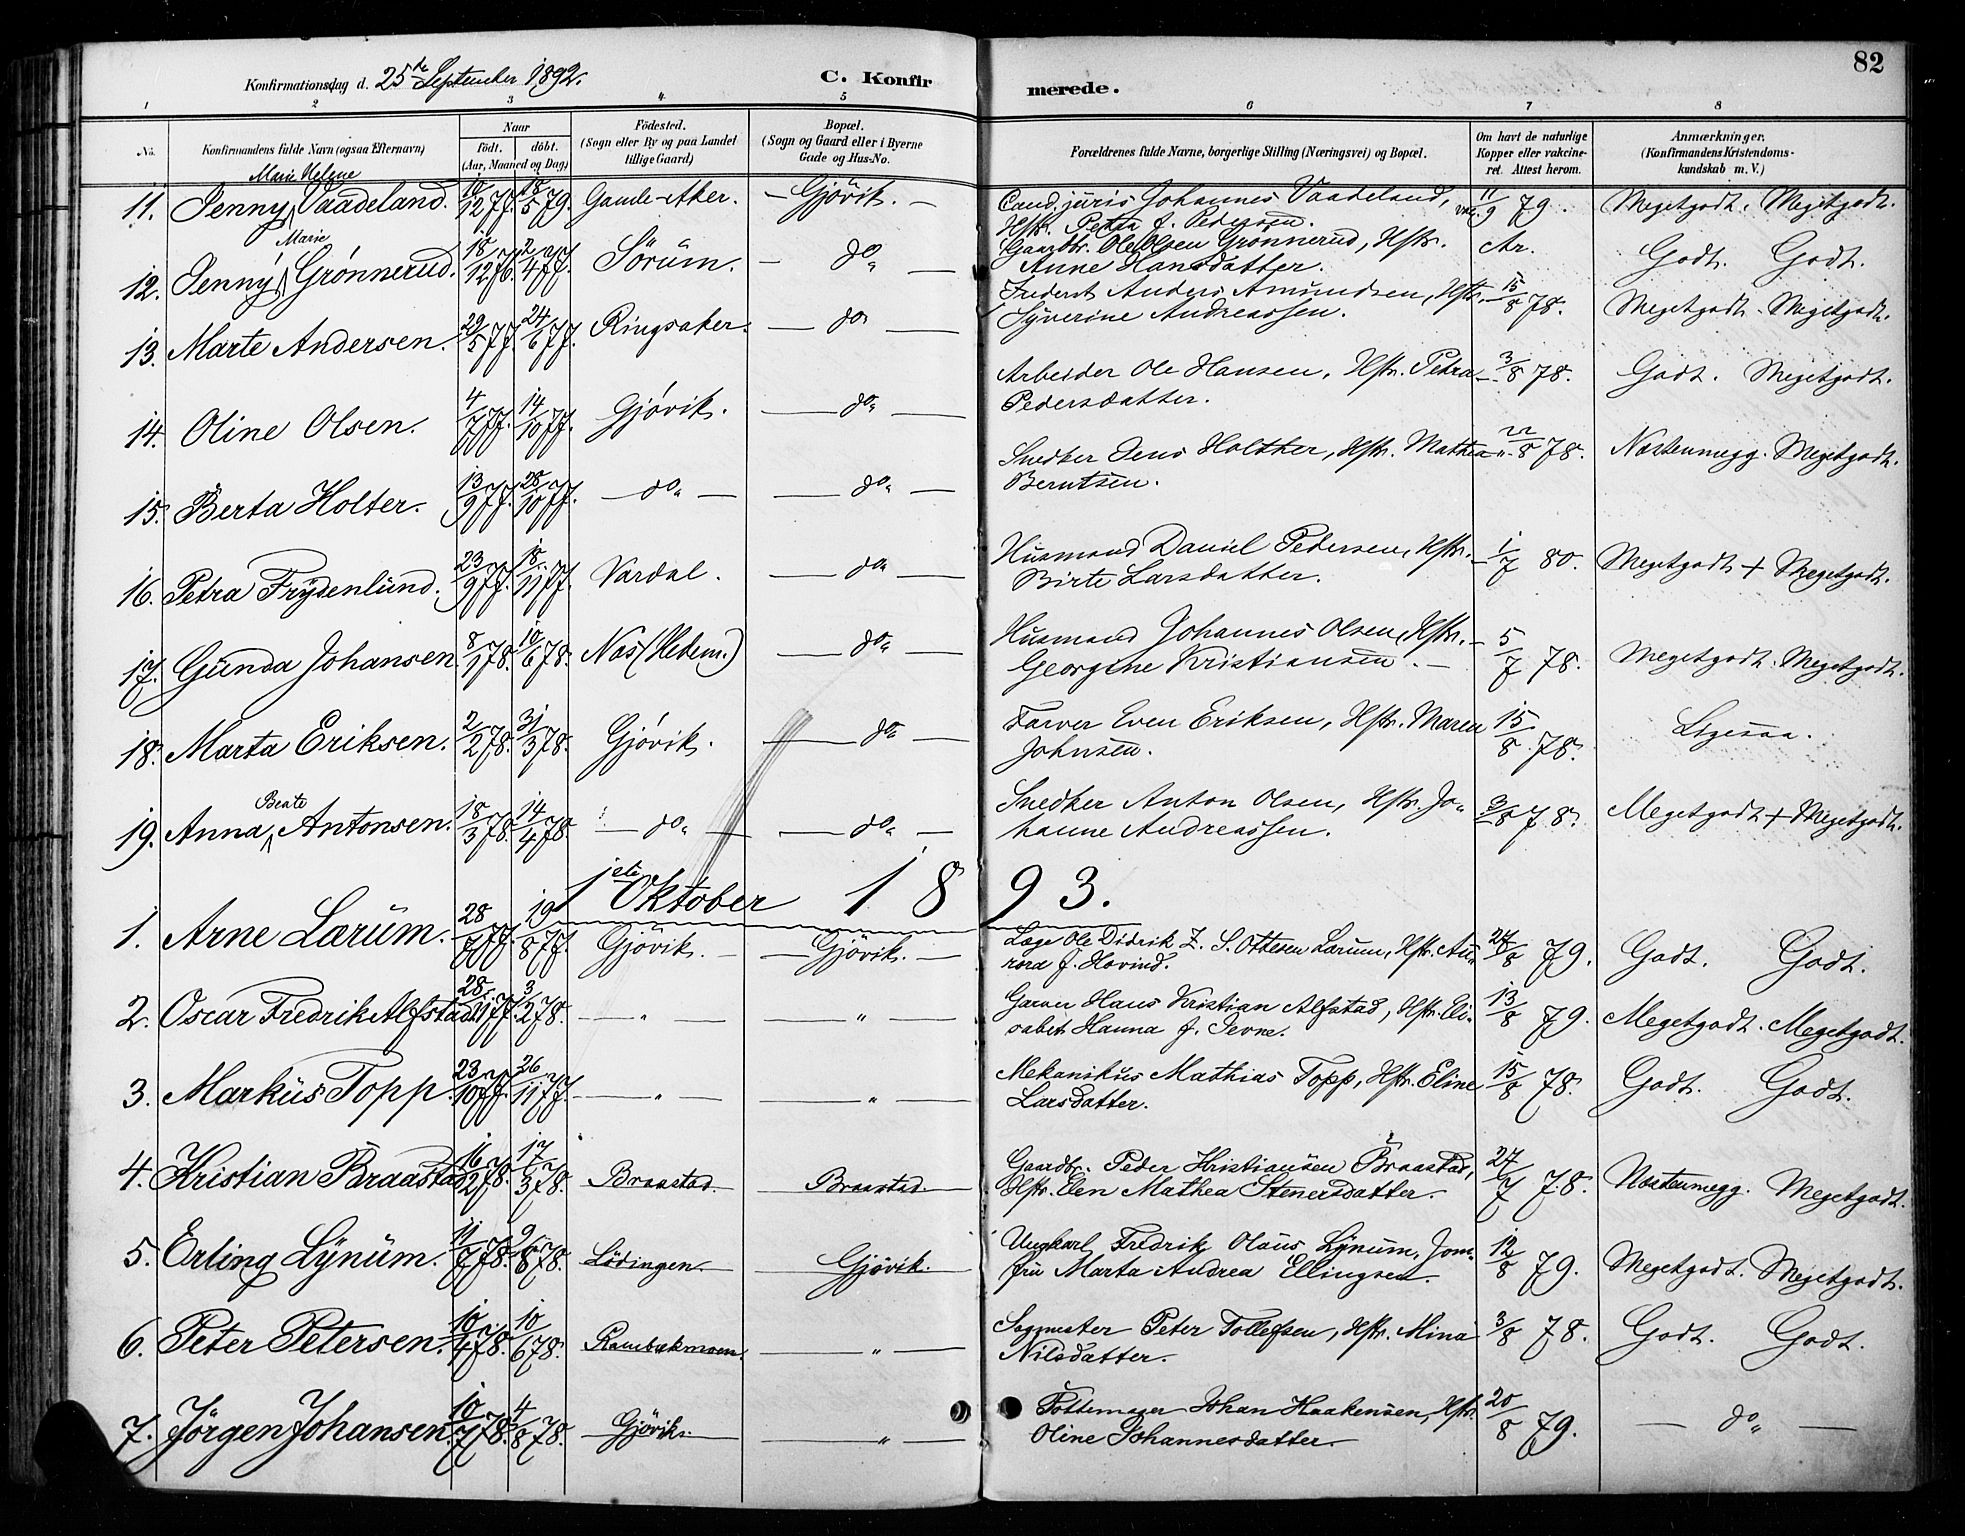 82
Konfirmationsdag d. 25de September 1892. C. Konfirmerede.
1 2 3 4 5 6 7 8
No. Konfirmandens fulde Navn (ogsaa Efternavn) Naar født. døbt. (Aar, Maaned og Dag) Födested. (Sogn eller By og paa Landet tillige Gaard) Bopæl. (Sogn og Gaard eller i Byerne Gade og Hus-No. Forældrenes fulde Navne, borgerlige Stilling (Næringsvei) og Bopæl. Om havt de naturlige Kopper eller vakcineret. Attest herom. Anmærkninger. (Konfirmandens Kristendomskundskab m. V.)
Marie Helene
11. Jenny Vaadeland. 10/12 77. 18/5 79. Gamle-Aker. — Gjövik. — Cand. juris Johannes Vaadeland, Hstr. Petra f. Pedersen. vac. 11/9 79. Megetgodt. Megetgodt.
Marie
12. Jenny Grønnerud. 18/12 76. 2/4 77. Sörum. — do — Gaardbr. Ole Olsen Grönnerud, Hstr. Anne Hansdatter. Ar. Godt. Godt.
13. Marte Andersen. 29/5 77. 24/6 77. Ringsaker. — do — Inderst Anders Amundsen, Hstr. Syverine Andreassen. 15/8 78. Megetgodt. Megetgodt.
14. Oline Olsen. 4/7 77. 14/10 77. Gjøvik. — do — Arbeider Ole Hansen, Hstr. Petra Pedersdatter. 3/8 78. Godt. Megetgodt.
15. Berta Holter. 13/9 77. 28/10 77. — do — — do — Snedker Jens Holther, Hstr. Mathea Berntsen. 22/8 78. Næstenmegg. Megetgodt.
16. Petra Frydenlund. 23/9 77. 18/11 77. Vardal. — do — Husmand Daniel Pedersen, Hstr. Birte Larsdatter. 1/7 80. Megetgodt + Megetgodt.
17. Gunda Johansen. 8/1 78. 10/6 78. Næs (Hedem.) — do — Husmand Johannes Olsen, Hstr. Georgine Kristiansen. — 5/7 78. Megetgodt. Megetgodt.
18. Marta Eriksen. 2/2 78. 31/3 78. Gjövik. — do — Farver Even Eriksen, Hstr. Maren Johnsen. 15/8 78. Ligesaa.
Beate
19. Anna Antonsen. 18/3 78. 14/4 78. — do — — do — Snedker Anton Olsen, Hstr. Johanne Andreassen. 3/8 78. Megetgodt + Megetgodt.
1ste Oktober 1893.
1. Arne Lærum. 28/7 77. 19/8 77. Gjövik. — Gjövik. — Læge Ole Didrik Z. S. Ottesen Lærum, Hstr. Aurora f. Hovind. 24/8 79. Godt. Godt.
2. Oscar Fredrik Alfstad. 28/11 77. 3/2 78. — " — — " — Garver Hans Kristian Alfstad, Hstr. Elisabet Hanna f. Jevne. 13/8 79. Megetgodt. Megetgodt.
3. Markus Topp. 23/10 77. 26/11 77. — " — — " — Mekanikus Mathias Topp, Hstr. Eline Larsdatter. 15/8 78. Godt. Godt.
4. Kristian Braastad. 16/2 78. 17/3 78. Braastad. — Braastad. Gaardbr. Peder Kristiansen Braastad, Hstr. Elen Mathea Stenersdatter. 27/7 78. Næstenmegg. Megetgodt.
5. Erling Lynum. 11/7 78. 9/8 78. Lödingen. Gjövik. Ungkarl Fredrik Olaus Lynum, Jomfru Marta Andrea Ellingsen. 12/8 79. Megetgodt. Megetgodt.
6. Peter Petersen. 10/4 78. 10/6 78. Rambækmoen. — " — Sagmester Peter Tollefsen, Hstr. Mina Nilsdatter. 3/8 78. Godt. Godt.
7. Jörgen Johansen. 10/7 78. 4/8 78. Gjövik. — " — Pottemager Johan Haakensen, Hstr. Oline Johannesdatter. 20/8 79. — do —